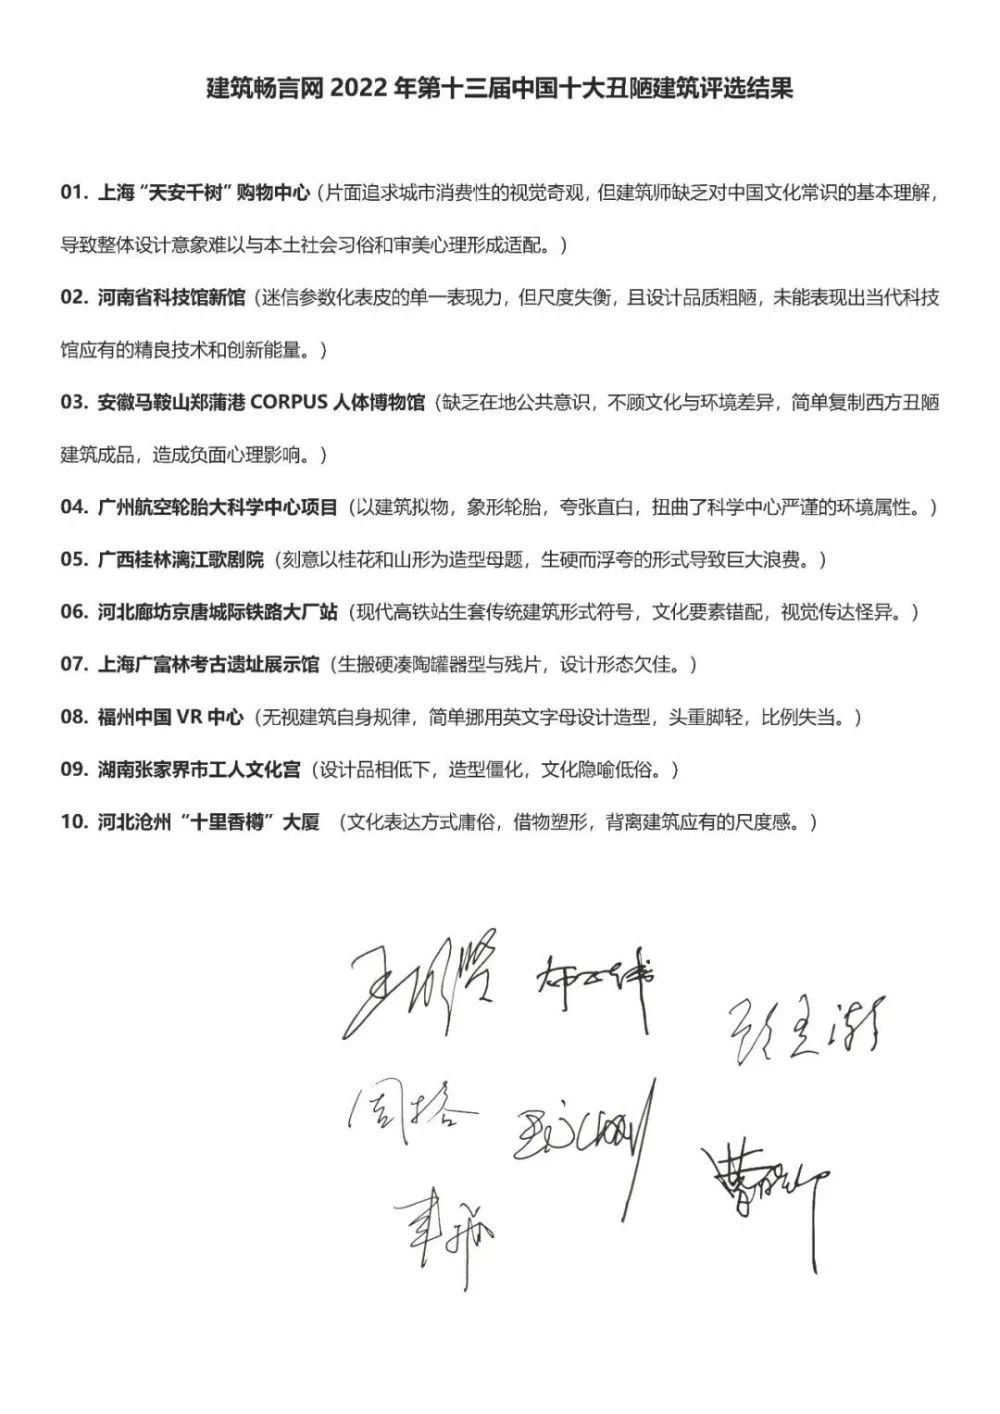 建筑畅言网 2022 年第十三届中国十大丑陋建筑评选结果
01. 上海“天安千树”购物中心（片面追求城市消费性的视觉奇观，但建筑师缺乏对中国文化常识的基本理解，
导致整体设计意象难以与本土社会习俗和审美心理形成适配。）
02. 河南省科技馆新馆（迷信参数化表皮的单一表现力，但尺度失衡，且设计品质粗陋，未能表现出当代科技
馆应有的精良技术和创新能量。）
03. 安徽马鞍山郑蒲港 CORPUS 人体博物馆（缺乏在地公共意识，不顾文化与环境差异，简单复制西方丑陋
建筑成品，造成负面心理影响。）
04. 广州航空轮胎大科学中心项目（以建筑拟物，象形轮胎，夸张直白，扭曲了科学中心严谨的环境属性。）
05. 广西桂林漓江歌剧院（刻意以桂花和山形为造型母题，生硬而浮夸的形式导致巨大浪费。）
06. 河北廊坊京唐城际铁路大厂站（现代高铁站生套传统建筑形式符号，文化要素错配，视觉传达怪异。）
07. 上海广富林考古遗址展示馆（生搬硬凑陶罐器型与残片，设计形态欠佳。）
08. 福州中国 VR 中心（无视建筑自身规律，简单挪用英文字母设计造型，头重脚轻，比例失当。）
09. 湖南张家界市工人文化宫（设计品相低下，造型僵化，文化隐喻低俗。）
10. 河北沧州“十里香樽”大厦 （文化表达方式庸俗，借物塑形，背离建筑应有的尺度感。）
王明贤
周榕